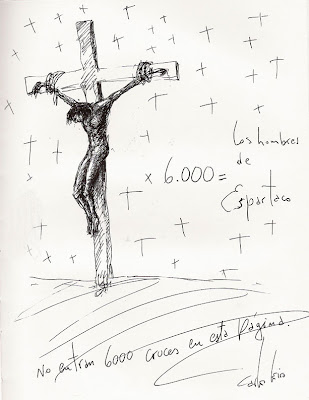 Los hombres
de
x 6.000 = Espartaco
No entran 6000 cruces en esta página.